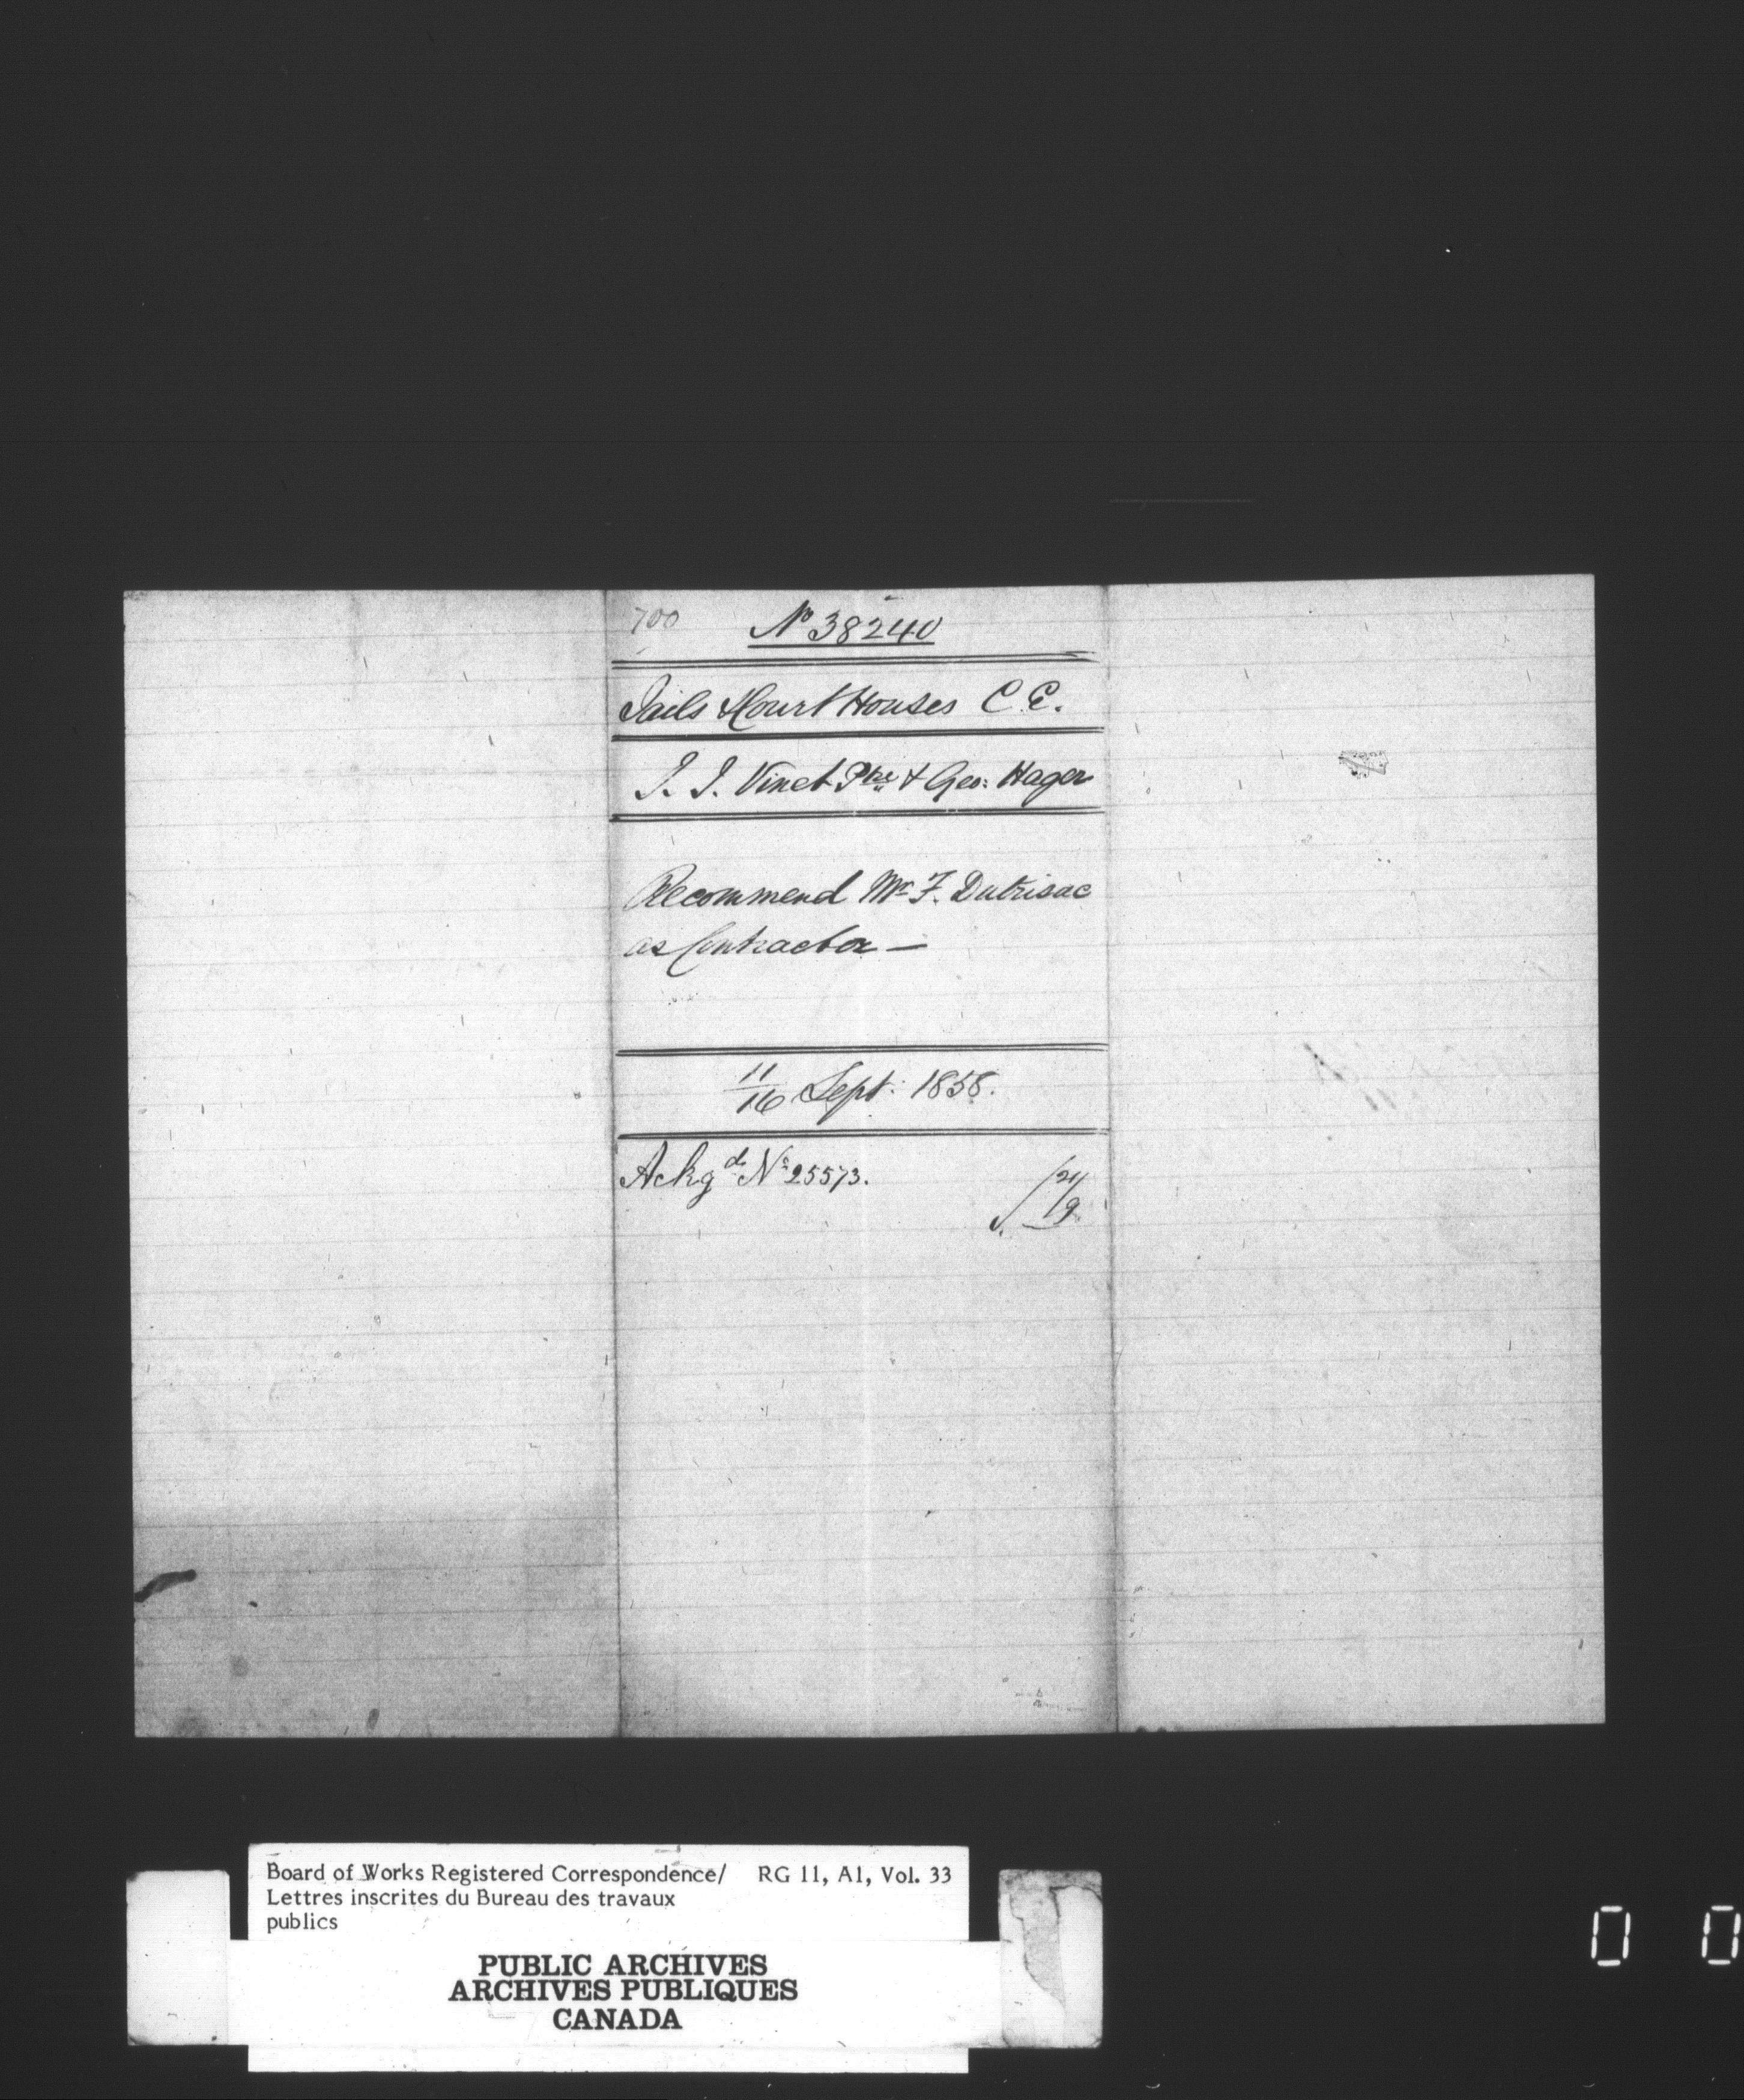 700 No 38240
Jails & Court Houses C. E.
J. J. Vinet Ptre & Geo: Hager
Recommend Mr F. Dutrisac
as Contractor —
11/16 Sept: 1858.
Ackgd No 25573.
21/9
Board of Works Registered Correspondence/ RG 11, A1, Vol. 33
Lettres inscrites du Bureau des travaux
publics
PUBLIC ARCHIVES
ARCHIVES PUBLIQUES
CANADA
0 0